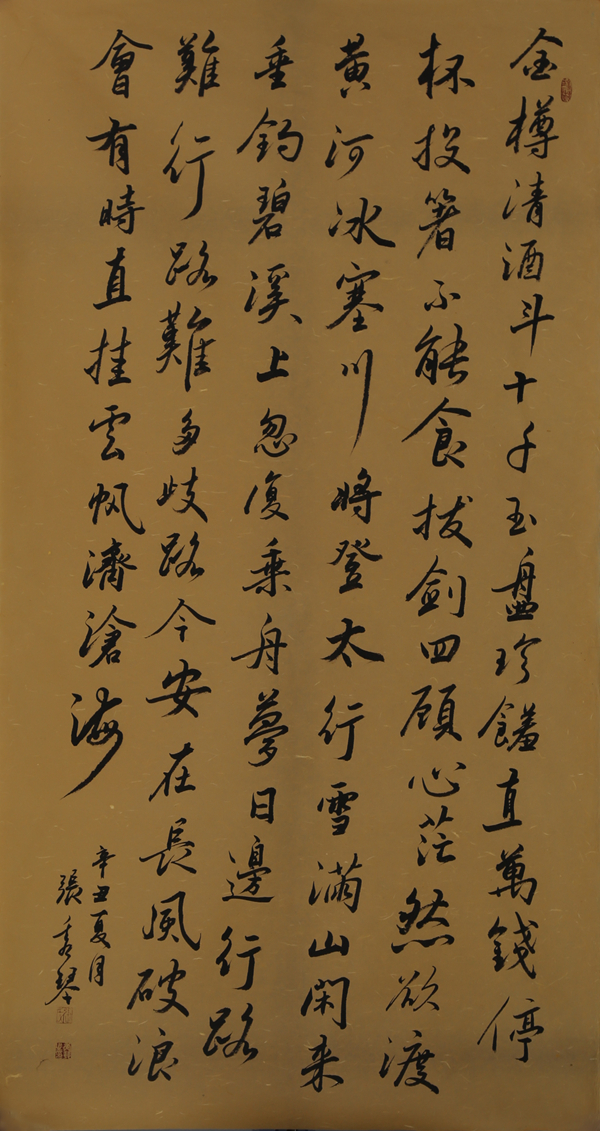 金樽清酒斗十千玉盤珍饈直萬錢停
杯投箸不能食拔劍四顧心茫然欲渡
黄河冰塞川將登太行雪滿山閑来
垂釣碧溪上忽復乘舟夢日邊行路
難行路難多歧路今安在長風破浪
會有時直挂雲帆濟滄海
辛丑夏月
張秀琴